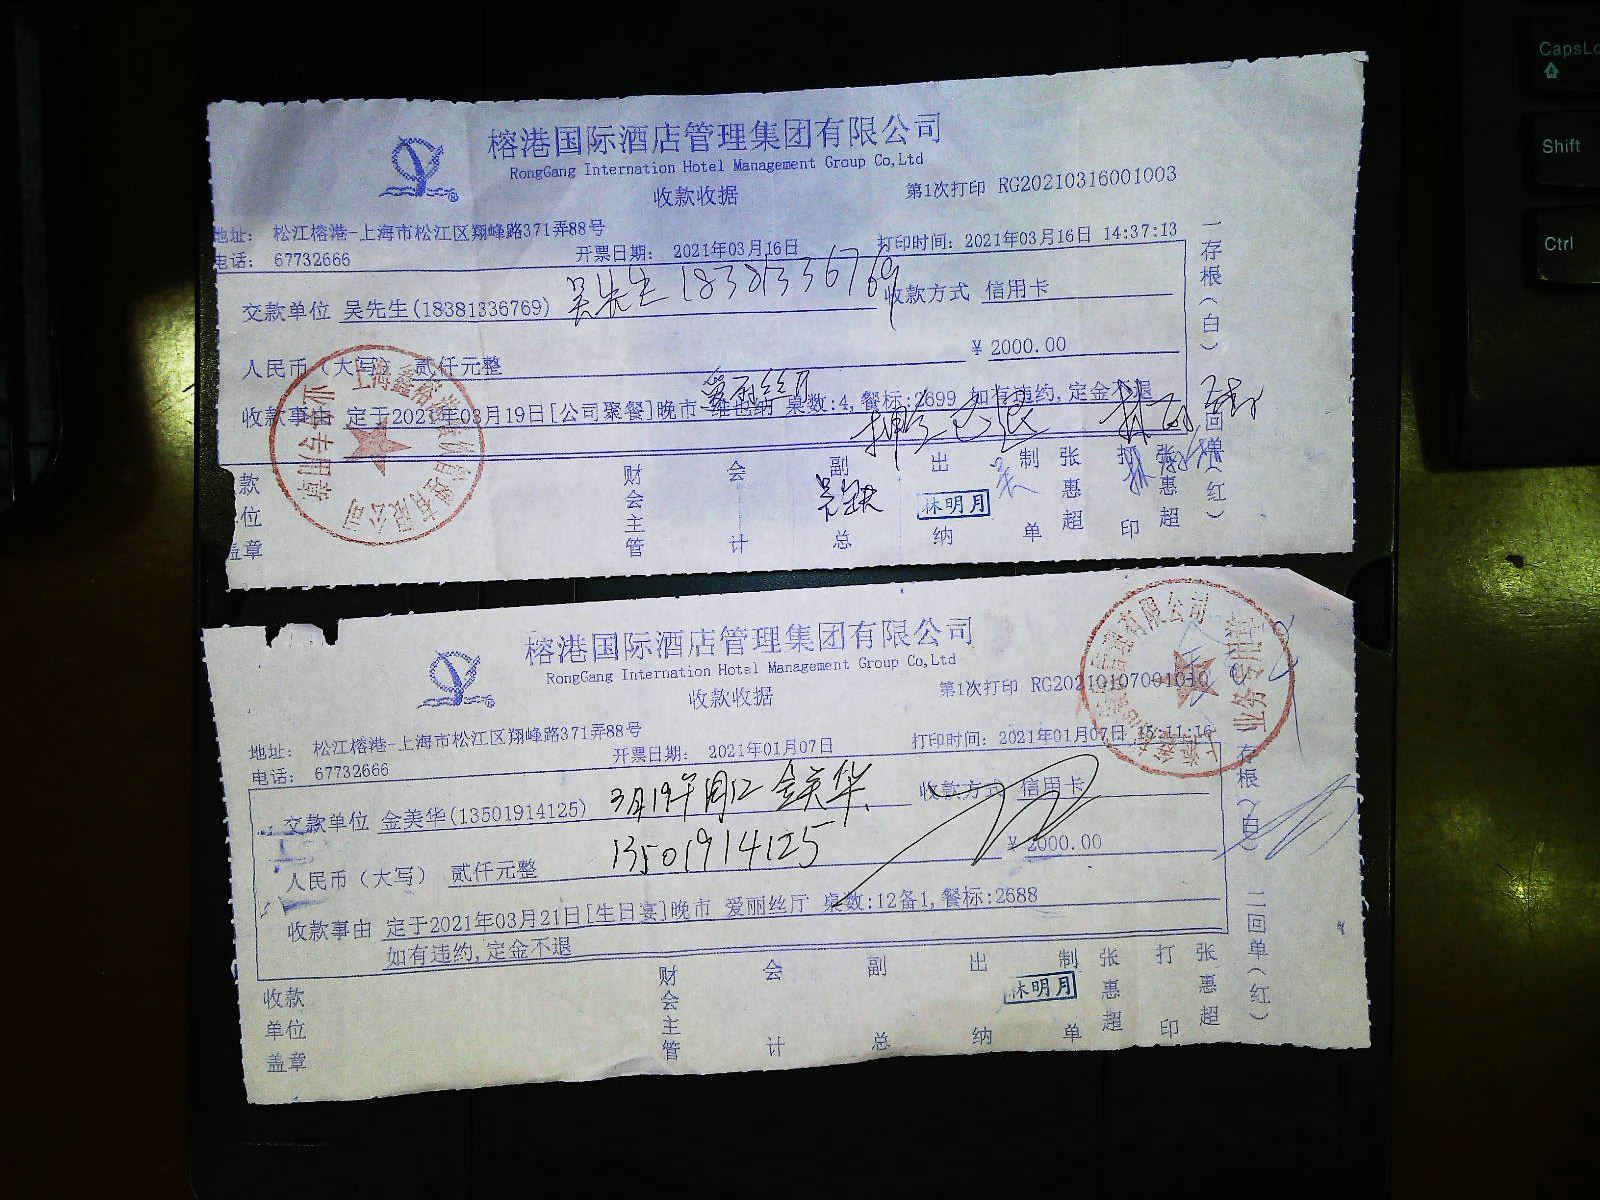 榕港国际酒店管理集团有限公司
RongGang Internation Hotel Management Group Co,Ltd
收款收据
第1次打印 RG20210316001003
地址: 松江榕港-上海市松江区翔峰路371弄88号
电话: 67732666
开票日期: 2021年03月16日
打印时间: 2021年03月16日 14:37:13
交款单位 吴先生(18381336769) 吴先生 18381336769
收款方式 信用卡
人民币(大写) 贰仟元整
¥ 2000.00
爱丽丝厅
收款事由 定于2021年03月19日[公司聚餐]晚市 维也纳 桌数:4, 餐标:2699 如有违约, 定金不退
押金已退
款位盖章
财会主管
会计
副总
出纳
林明月
制单
张惠超
打印
张惠超
一存根(白)
二回单(红)
榕港国际酒店管理集团有限公司
RongGang Internation Hotel Management Group Co,Ltd
收款收据
第1次打印 RG20210107001010
业务专用章
地址: 松江榕港-上海市松江区翔峰路371弄88号
电话: 67732666
开票日期: 2021年01月07日
打印时间: 2021年01月07日 15:11:16
交款单位 金美华(13501914125) 金美华
13501914125
收款方式 信用卡
人民币(大写) 贰仟元整
¥ 2000.00
收款事由 定于2021年03月21日[生日宴]晚市 爱丽丝厅 桌数:12备1, 餐标:2688
如有违约, 定金不退
收款单位盖章
财会主管
会计
副总
出纳
林明月
制单
张惠超
打印
张惠超
存根(白)
二回单(红)
CapsLo
Shift
Ctrl